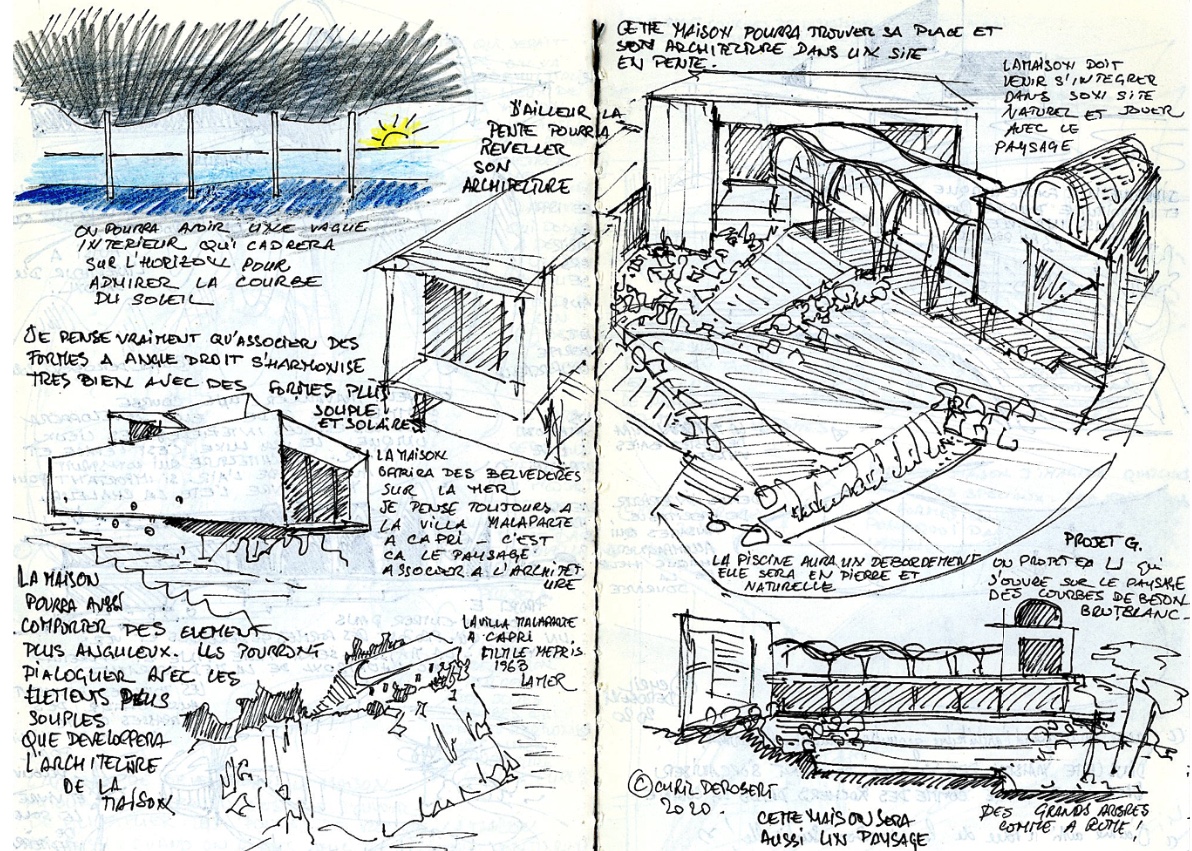 D'AILLEUR LA
PENTE POURRA
REVELLER
SON
ARCHITECTURE
ON POURRA AVOIR UNE VAGUE
INTERIEUR QUI CADRERA
SUR L'HORIZON POUR
ADMIRER LA COURBE
DU SOLEIL
JE PENSE VRAIMENT QU'ASSOCIER DES
FORMES A ANGLE DROIT S'HARMONISE
TRES BIEN AVEC DES FORMES PLUS
SOUPLE
ET SOLAIRES
LA MAISON
DES BELVEDERES
SUR LA MER
JE PENSE TOUJOURS A
LA VILLA MALAPARTE
A CAPRI - C'EST
CA LE PAYSAGE
ASSOCIER A L'ARCHITECT-
URE
LA MAISON
POURRA AUSSI
COMPORTER DES ELEMENT
PLUS ANGULEUX. ILS POURRONT
DIALOGUER AVEC LES
ELEMENTS PLUS
SOUPLES
QUE DEVELOPPERA
L'ARCHITECTURE
DE LA
MAISON
LA VILLA MALAPARTE
A CAPRI
FILM LE MEPRIS
1963
LA MER
CETTE MAISON POURRA TROUVER SA PLACE ET
SON ARCHITECTURE DANS UN SITE
EN PENTE.
LA MAISON DOIT
VENIR S'INTEGRER
DANS SON SITE
NATUREL ET JOUER
AVEC LE
PAYSAGE
LA PISCINE AURA UN DEBORDEMENT
ELLE SERA EN PIERRE ET
NATURELLE
PROJET G.
UN PROJET EN U QUI
S'OUVRE SUR LE PAYSAGE
DES COURBES DE BETON
BRUT BLANC-
© CYRIL DEROBERT
2020.
CETTE MAISON SERA
AUSSI UN PAYSAGE
DES GRANDS ARBRES
COMME A